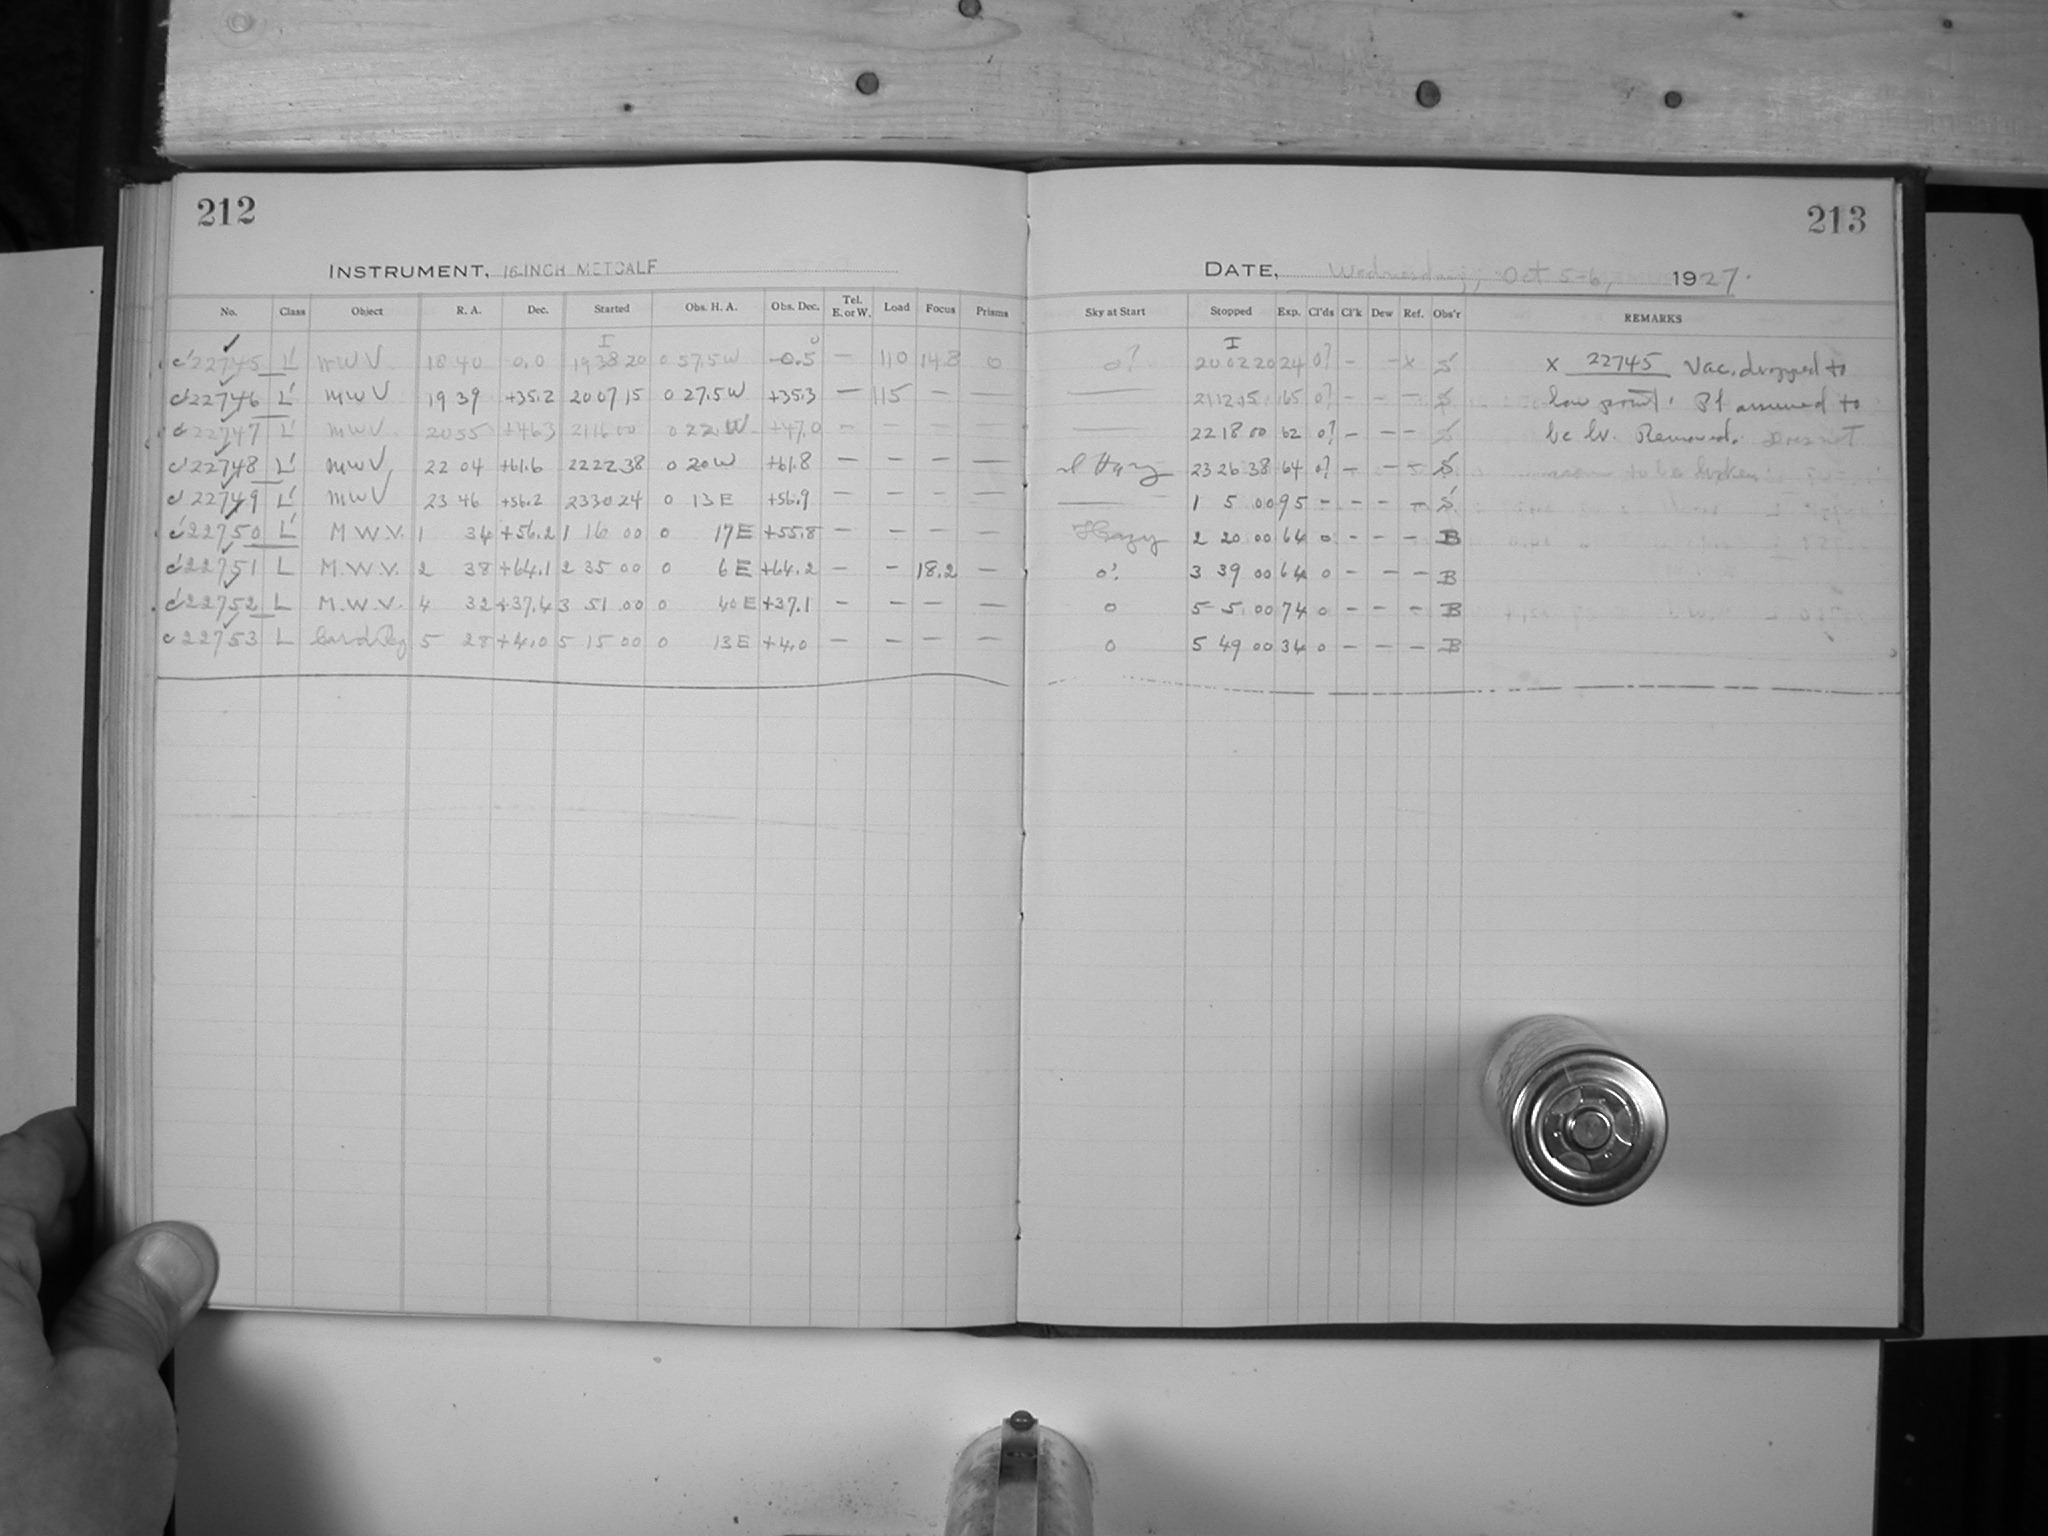 212
213
INSTRUMENT, 16-INCH METCALF
DATE, Wednesday, Oct 5-6, 1927.
No. Class Object R. A. Dec. Started Obs. H. A. Obs. Dec. Tel. E. or W. Load Focus Prisms Sky at Start Stopped Exp. Cl'ds Cl'k Dew Ref. Obs'r REMARKS
I 0 I
c'22745 L' MWV 18 40 0.0 19 38 20 0 57.5W -0.5 — 110 14.8 0 0? 20 02 20 24 0? - - x S x 22745 Vac. dropped to
c'22746 L' MWV 19 39 +35.2 20 07 15 0 27.5W +35.3 — 115 — — — 65 0? - - - S low point. Pl assumed to
c'22747 L' MWV 20 55 +46.3 21 16 00 0 22 W +47.0 — — — — — 22 18 00 62 0? - - - S be br. Removed. Does not
c'22748 L' MWV 22 04 +61.6 22 22 38 0 20W +61.8 — — — — sl Hazy 23 26 38 64 0? - - - S seem to be broken.
c'22749 L' MWV 23 46 +56.2 23 30 24 0 13E +56.9 — — — — — 1 5 00 95 - - - - S
c'22750 L' M.W.V. 1 34 +56.2 1 16 00 0 17E +55.8 — — — — Hazy 2 20 00 64 0 - - - B
c'22751 L M.W.V. 2 38 +64.1 2 35 00 0 6E +64.2 — — 18.2 — 0? 3 39 00 64 0 - - - B
c'22752 L M.W.V. 4 32 +37.4 3 51 00 0 40E +37.1 — — — — 0 5 5 00 74 0 - - - B
c22753 L 5 28 +4.0 5 15 00 0 13E +4.0 — — — — 0 5 49 00 34 0 - - - B